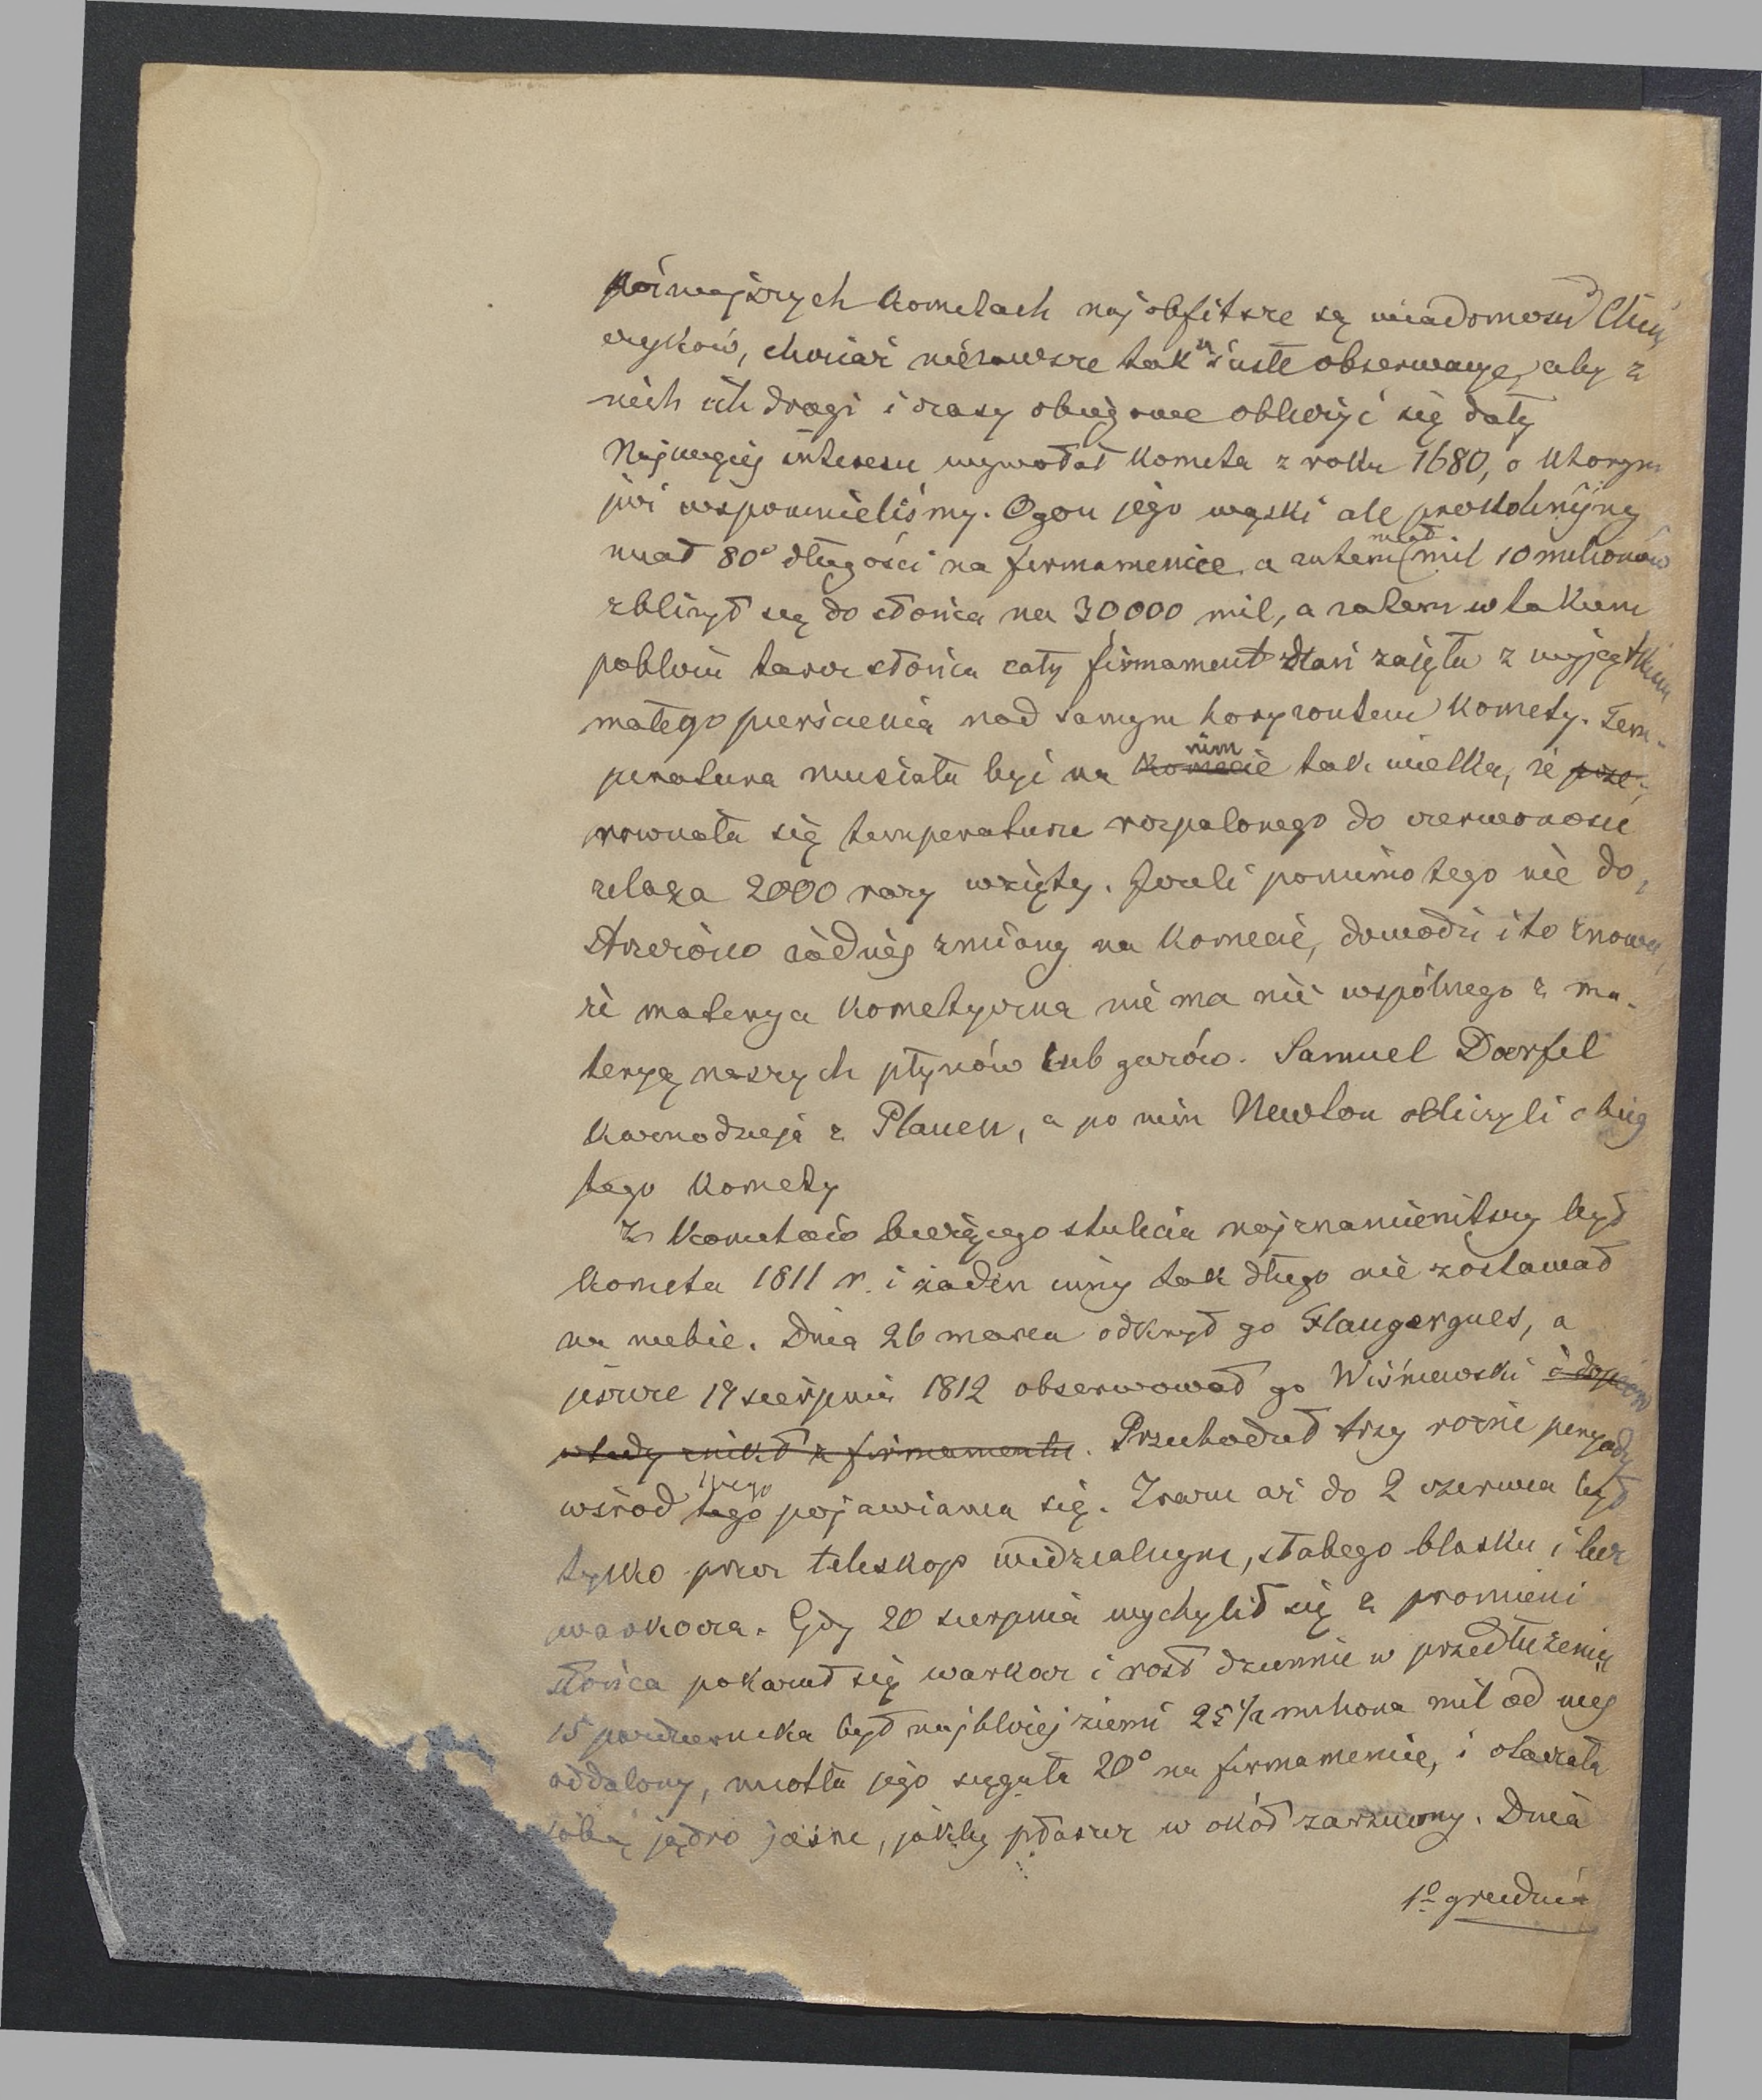 późniejszych kometach najobfitsze są wiadomości Chiń
czyków, chociaż nie zawsze tak są ścisłe obserwacye, aby z
nich ich drogi i czasy obiegowe obliczyć się dały
Najwięcej interesu wywołał kometa z roku 1680, o którym
już wspomnieliśmy. Ogon jego wązki ale prostolinijny
miał 80° długości na firmamencie a zatem miał mil 10 milionów
zbliżył się do słońca na 30000 mil, a zatem w takiem
pobliżu tarcza słońca cały firmament zajęła z wyjątkiem
małego pierścienia nad samym horyzontem komety. Tem-
peratura musiała być na komecie nim tak wielka, że prze-
rownała się temperaturze rozpalonego do czerwoności
żelaza 2000 razy wziętej. Jeżeli pomimo tego nie do-
strzeżono żadnej zmiany na komecie, dowodzi i to znowu,
że materya kometyczna nie ma nic wspólnego z ma-
teryą naszych płynów lub gazów. Samuel Doerfel
kaznodzieja z Plauen, a po nim Newton obliczyli obieg
tego komety
Z kometów bieżącego stulecia najznamienitszy był
kometa 1811 r. i żaden inny tak długo nie zostawał
na niebie. Dnia 26 marca odkrył go Flaugergues, a
jeszcze 17 sierpnia 1812 obserwował go Wiśniewski i dopiero
wtedy znikł z firmamentu. Przechodził trzy rożne peryody
wśród tego swego pojawiania się. Zrazu aż do 2 czerwca był
tylko przez teleskop widzialnym, słabego blasku i bez
warkocza. Gdy 20 sierpnia wychylił się z promieni
słońca pokazał się warkocz i rosł dziennie w przedłużeniu
15 października był najbliżej ziemi 25 1/2 miliona mil od niej
oddalony, miotła jego sięgała 20° na firmamencie, i otaczała
sobą jądro jasne, jakby płaszcz w okół zarzucony. Dnia
1º grudnia